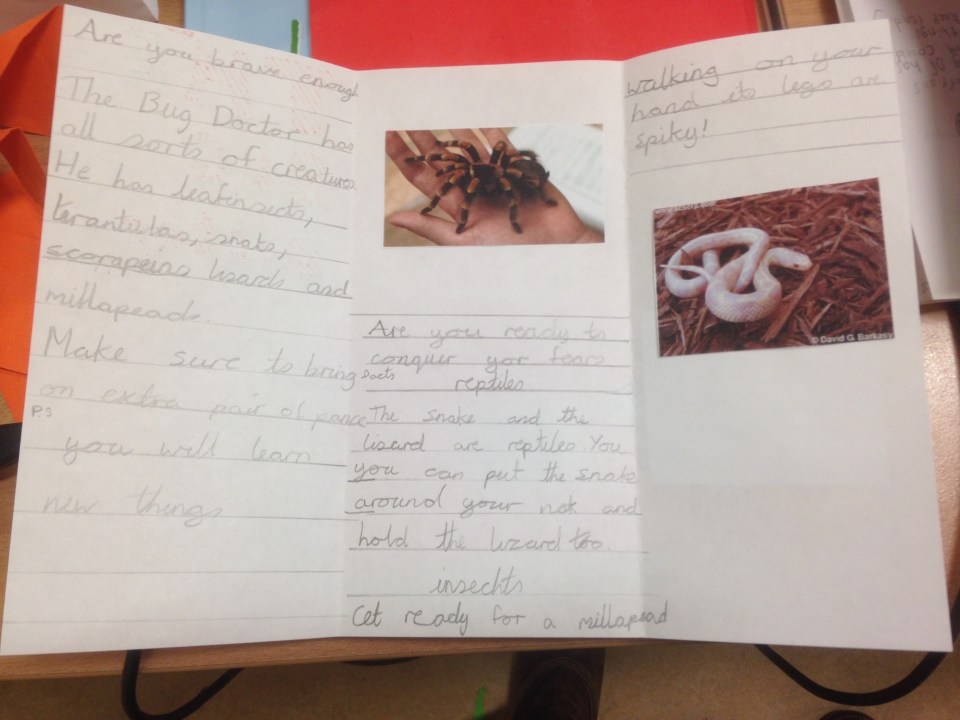 Are you brave enough
The Bug Doctor has
all sorts of creatures
He has leafinsects,
tarantulas, snaks,
scorapeins lizards and
millapeads.
Make sure to bring
on extra pair of pance
P.S
you will learn
new things
Are you ready to
conquer yor fears
Facts
reptiles
The snake and the
lizard are reptiles You
you can put the snake
around your nek and
hold the lizard too.
insechts
Get ready for a millapead
walking on your
hand its legs are
spiky!
© David G. Barkasy